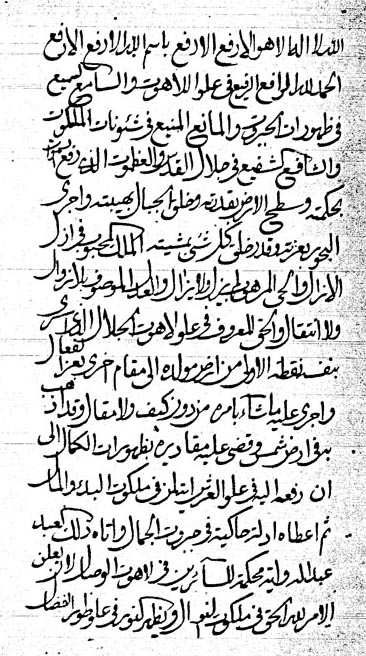 الله لا اله الا هو الارفع الارفع باسم الله الارفع الارفع
الحمد لله الرافع الرفيع فى علو اللاهوت والسامع السميع
فى ظهورات الجبروت والمانع المنيع فى شئونات الملكوت
والشافع الشفيع فى جلال القدس والعظموت الذى رفع السموات
بحكمته وسطح الارض بقدرته وخلق الجبال بهيبته واجرى
البحور بعزته وقد خلق كل شئ بمشيته الملك المحبوب فى ازل
الازال والحى المرهوب لم يزل ولا يزال والعدل الموصوف بلا زوال
ولا انتقال والحق المعروف فى علو لاهوت الجلال الذى اسرى
بنفسه نقطة الاولى من ارض مولده الى مقام اخرى بعز الفعال
واجرى عليه ما شاء بامره من دون كيف ولا مقال وقد اذهب
به فى ارض شمس وقضى عليه مقاديره بظهورات الكمال الى
ان رفعه اليه فى علو العز ثم ابتلى فى ملكوت البدء والمآل
ثم اعطاه ادلة حاكية فى جبروت الجمال واتاه ذلك العبد
عبدا لله واية محكمة للسائرين فى لاهوت الوصال لان يعلن
الامر لله الحق فى ملكوت المتعال ويظهر كنوز فى علو طور الفصال